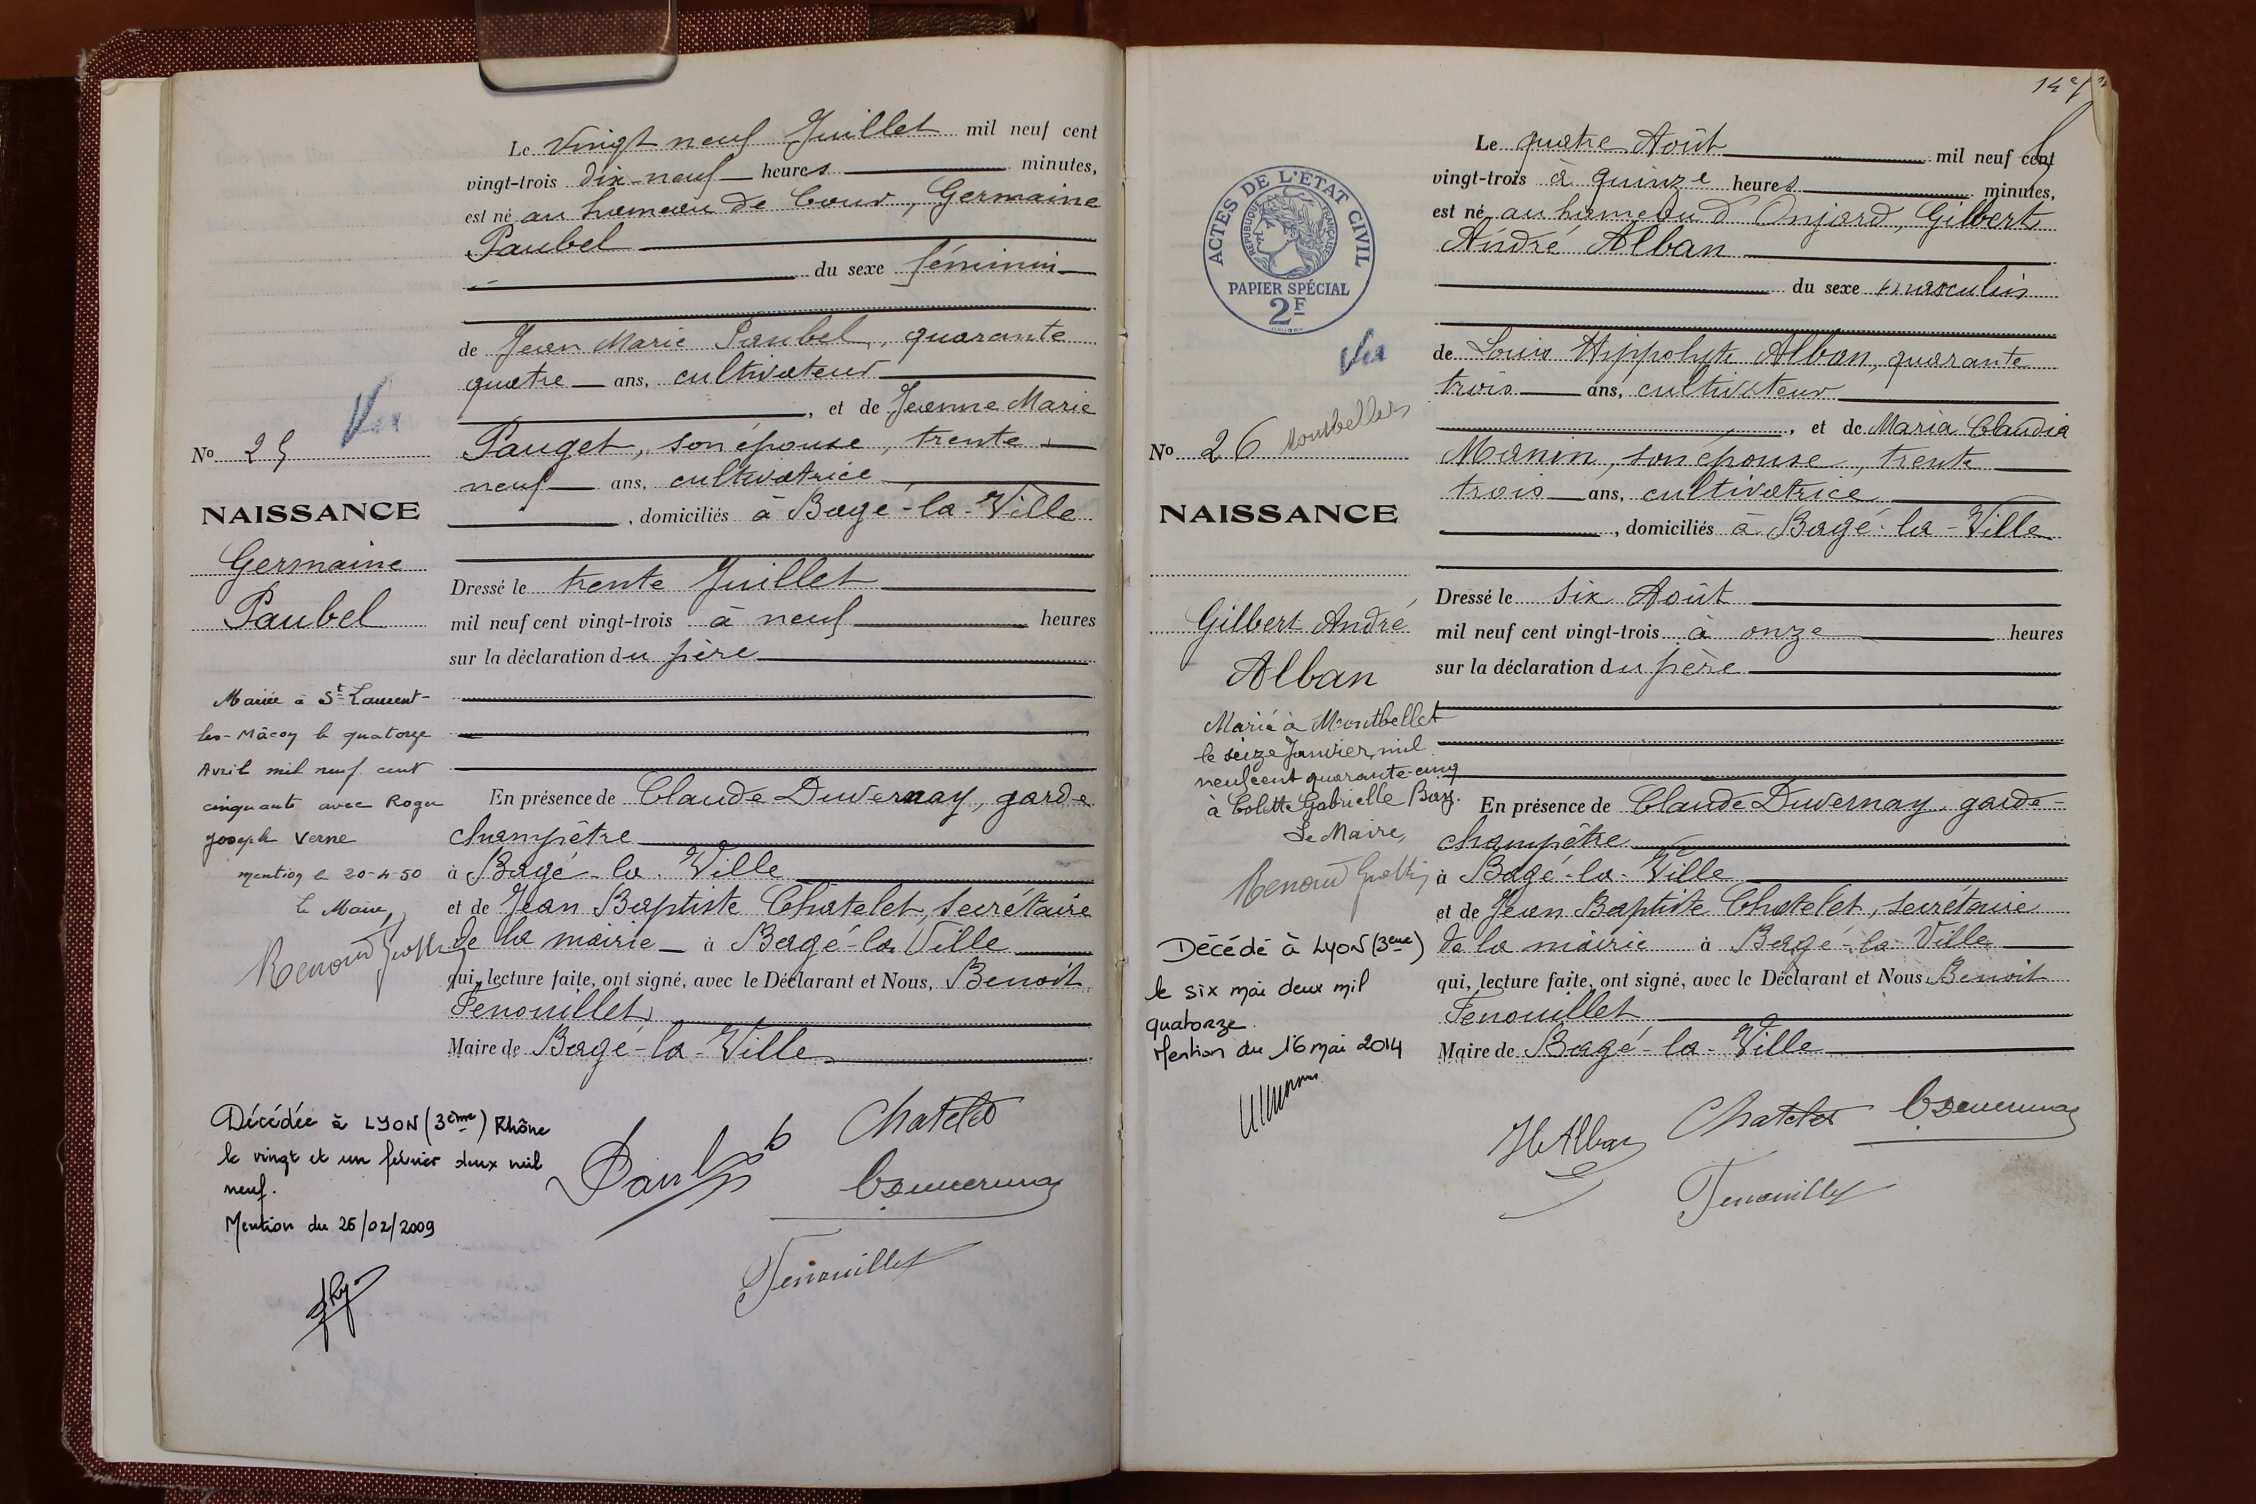 Le Vingt neuf Juillet mil neuf cent
vingt-trois dix-neuf heures minutes,
est né au hameau de Cour, Germaine
Paubel
du sexe féminin
de Jean Marie Paubel, quarante
quatre ans, cultivateur
, et de Jeanne Marie
Pauget, son épouse, trente
neuf ans, cultivatrice
, domiciliés à Bagé-la-Ville
Dressé le trente Juillet
mil neuf cent vingt-trois à neuf heures
sur la déclaration du père
En présence de Claude Duvernay, garde
champêtre
à Bagé-la-Ville
et de Jean Baptiste Chatelet, secrétaire
de la mairie à Bagé-la-Ville
qui, lecture faite, ont signé, avec le Déclarant et Nous, Benoit
Fenouillet
Maire de Bagé-la-Ville
Vu
No 25
NAISSANCE
Germaine
Paubel
Mariée à St Laurent-
les-Mâcon le quatorze
Avril mil neuf cent
cinquante avec Roger
Joseph Verne
mention le 20-4-50
le Maire,
Décédée à LYON (3ème) Rhône
le vingt et un février deux mil
neuf.
Mention du 26/02/2009
Paubel
Chatelet
C Duvernay
Fenouillet
14e
ACTES DE L'ETAT CIVIL
REPUBLIQUE FRANÇAISE
PAPIER SPÉCIAL
2F
Le quatre Août mil neuf cent
vingt-trois à quinze heures minutes,
est né au hameau d'Onjard, Gilbert
André Alban
du sexe masculin
de Louis Hippolyte Alban, quarante
trois ans, cultivateur
, et de Maria Claudia
Manin, son épouse, trente
trois ans, cultivatrice
, domiciliés à Bagé-la-Ville
Dressé le six Août
mil neuf cent vingt-trois à onze heures
sur la déclaration du père
En présence de Claude Duvernay, garde-
champêtre
à Bagé-la-Ville
et de Jean Baptiste Chatelet, secrétaire
de la mairie à Bagé-la-Ville
qui, lecture faite, ont signé, avec le Déclarant et Nous Benoit
Fenouillet
Maire de Bagé-la-Ville
Vu
No 26 Montbellet
NAISSANCE
Gilbert André
Alban
Marié à Montbellet
le seize Janvier mil
neuf cent quarante-cinq
à Colette Gabrielle
Le Maire,
Décédé à LYON (3eme)
le six mai deux mil
quatorze.
Mention du 16 mai 2014
H Alban
Chatelet
C Duvernay
Fenouillet